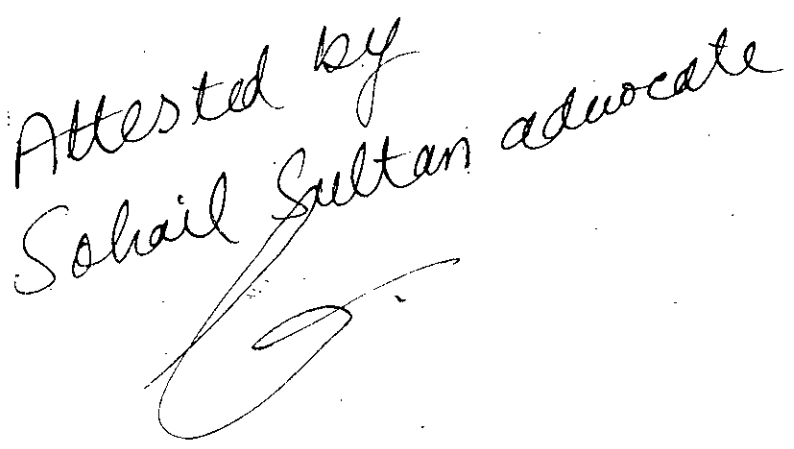 Attested by
Sohail Sultan advocate